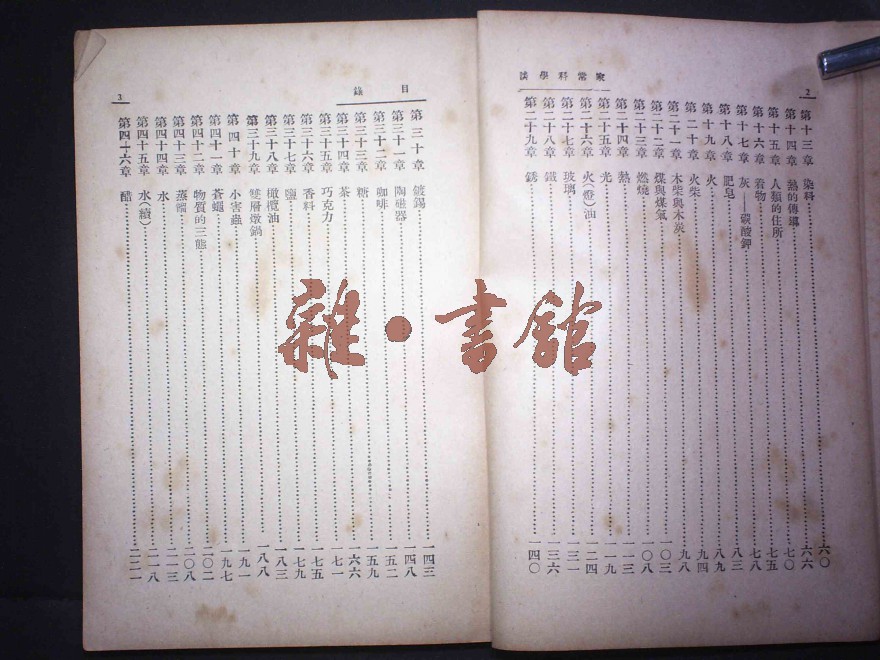 家常科學談
2
第十三章 染料 六〇
第十四章 熱的傳導 六六
第十五章 人類的住所 七〇
第十六章 着物 七五
第十七章 灰——碳酸鉀 七八
第十八章 肥皂 八三
第十九章 火
第二十章 火柴 九四
第二十一章 木柴與木炭 九八
第二十二章 煤與煤氣 一〇三
第二十三章 燃燒 一〇八
第二十四章 熱 一一三
第二十五章 光 一一九
第二十六章 火(燈)油 一二四
第二十七章 玻璃 一三一
第二十八章 鐵 一三六
第二十九章 銹 一四〇
目錄
3
第三十章 鍍錫 一四三
第三十一章 陶磁器 一四八
第三十二章 咖啡 一五二
第三十三章 糖 一五九
第三十四章 茶 一六六
第三十五章 巧克力 一七一
第三十六章 香料 一七五
第三十七章 鹽 一七九
第三十八章 橄欖油 一八三
第三十九章 雙層燉鍋 一八八
第四十章 小害蟲 一九一
第四十一章 蒼蠅 一九七
第四十二章 物質的三態 二〇二
第四十三章 蒸溜 二〇八
第四十四章 水 二一三
第四十五章 水(續) 二一八
第四十六章 醋 二二一
雜·書館